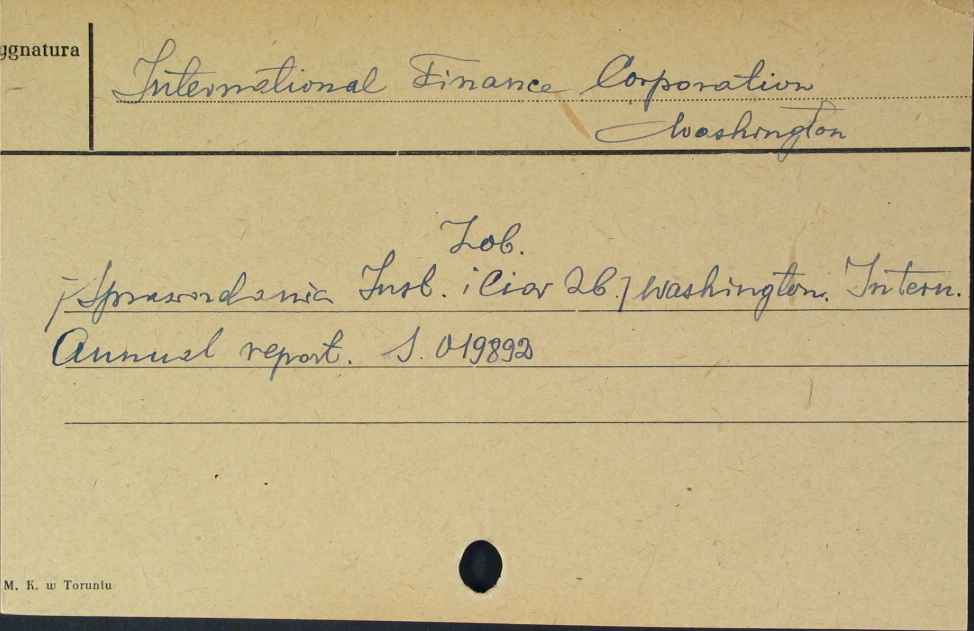 ygnatura
International Finance Corporation
Washington
Zob.
/Sprawozdania Inst. i Ciał Zb./ Washington. Intern.
Annual report. S. 019892
M. K. w Toruniu